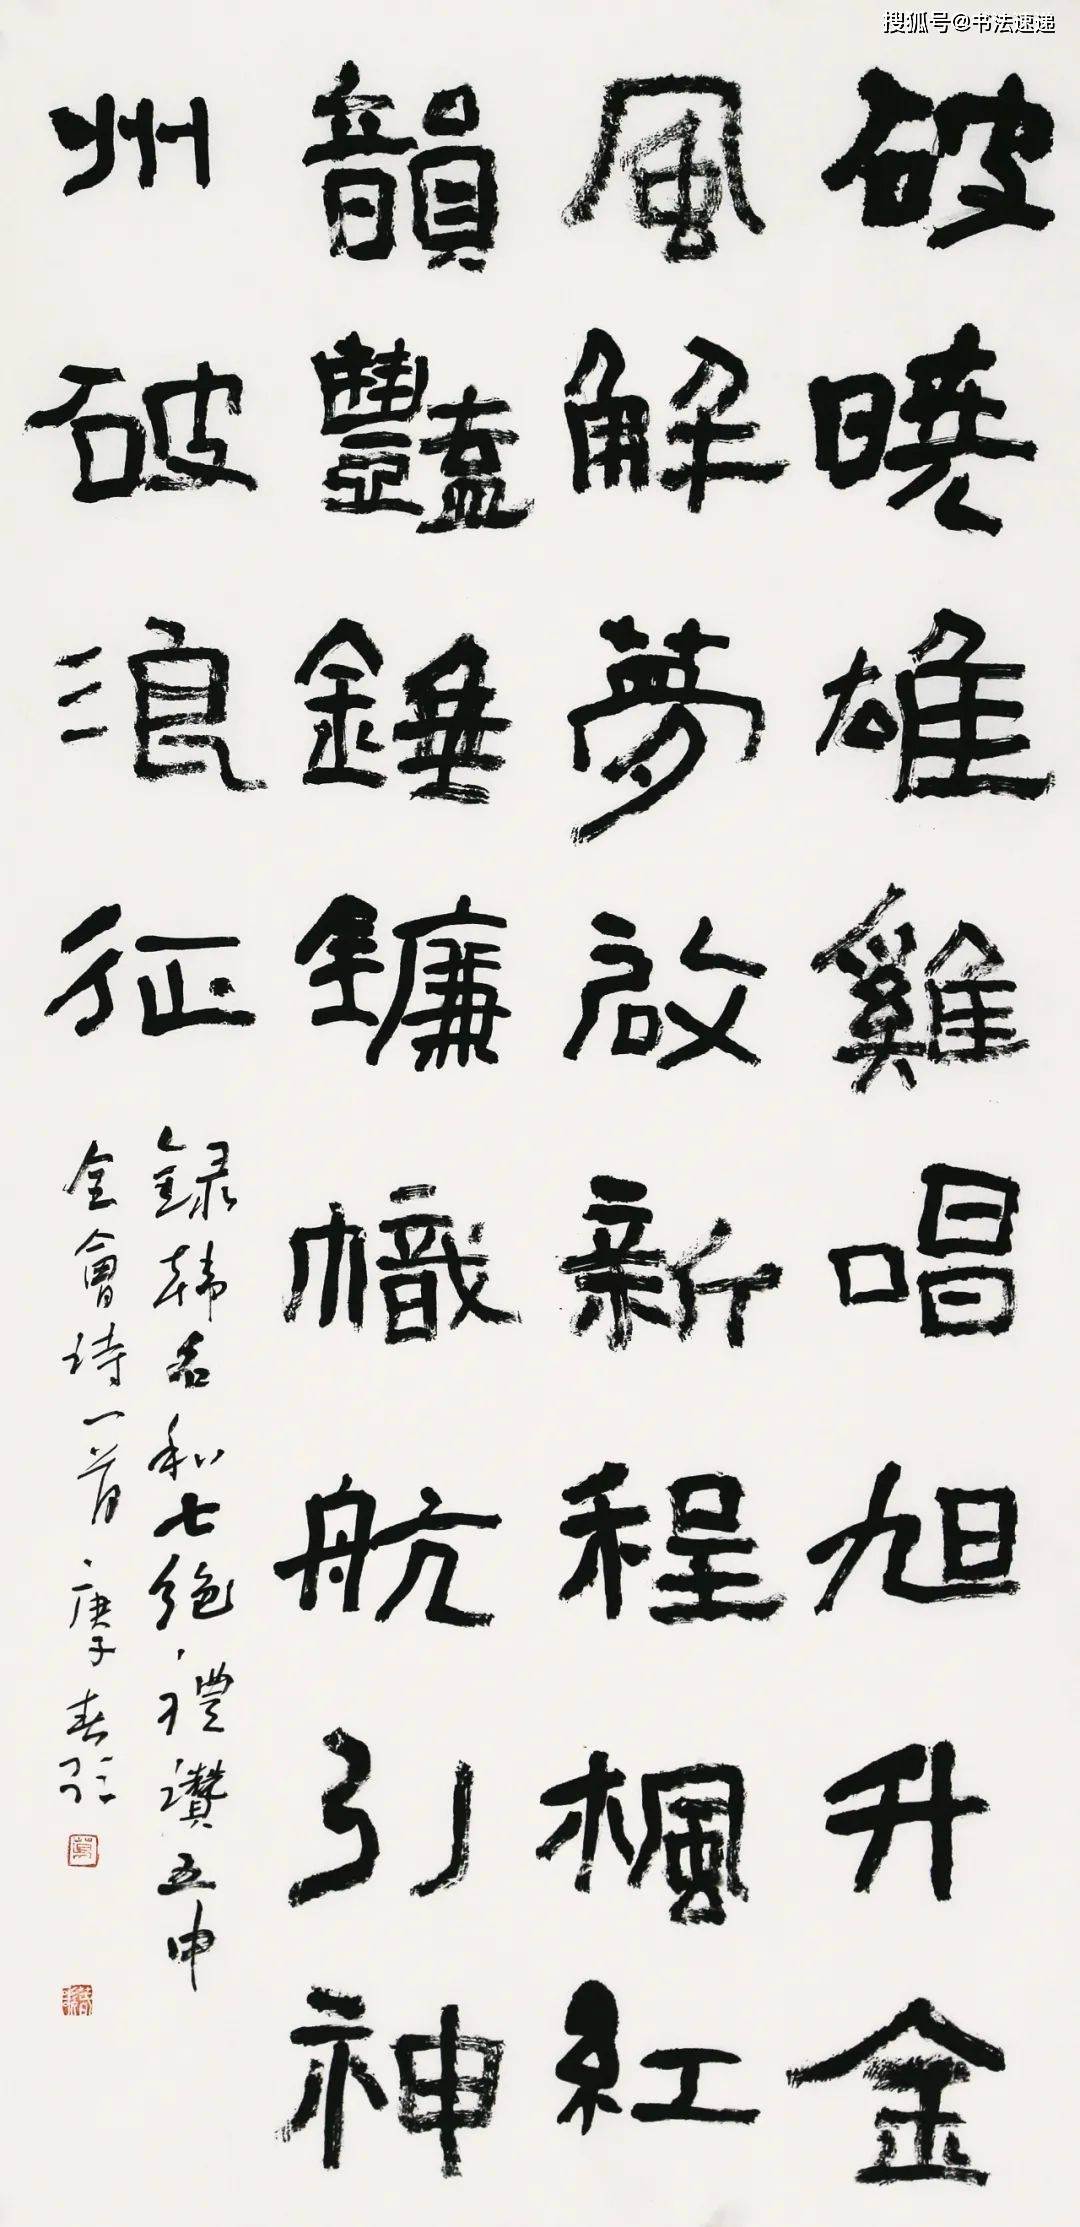 搜狐号@书法速递
破曉雄雞唱旭升金
風解夢啟新程楓紅
韻豔錘鐮幟航引神
州破浪征
録韩名和七絶、禮讚五中
全會诗一首 庚子春